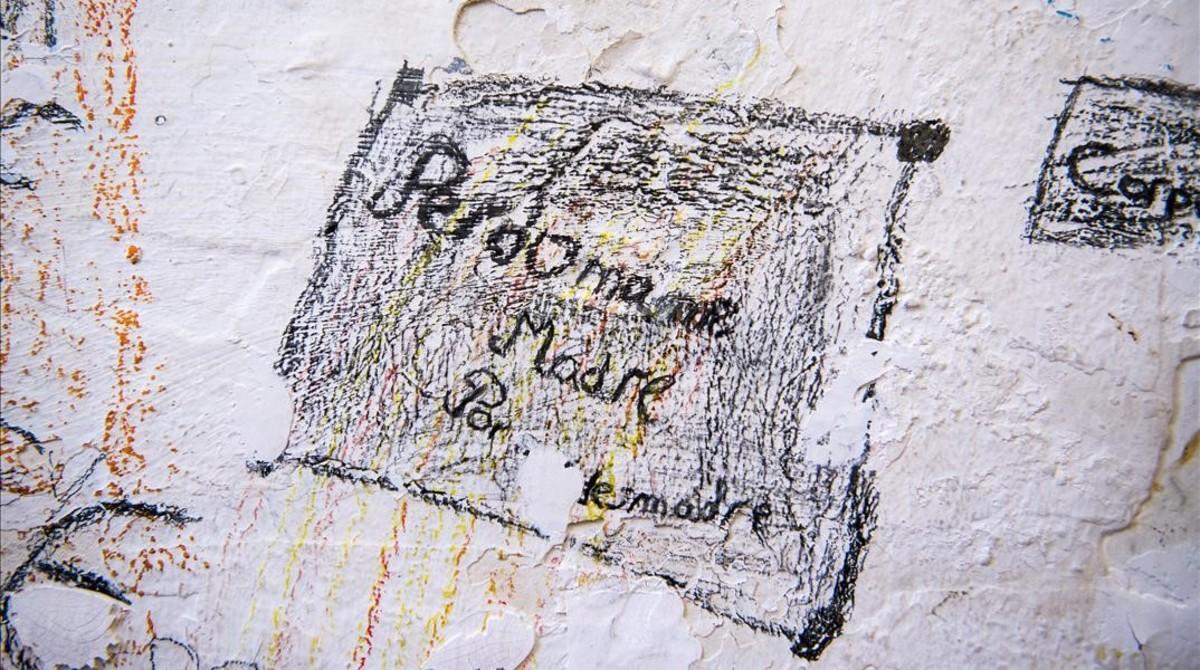 Perdoname
Madre
Por
de madre
Cap